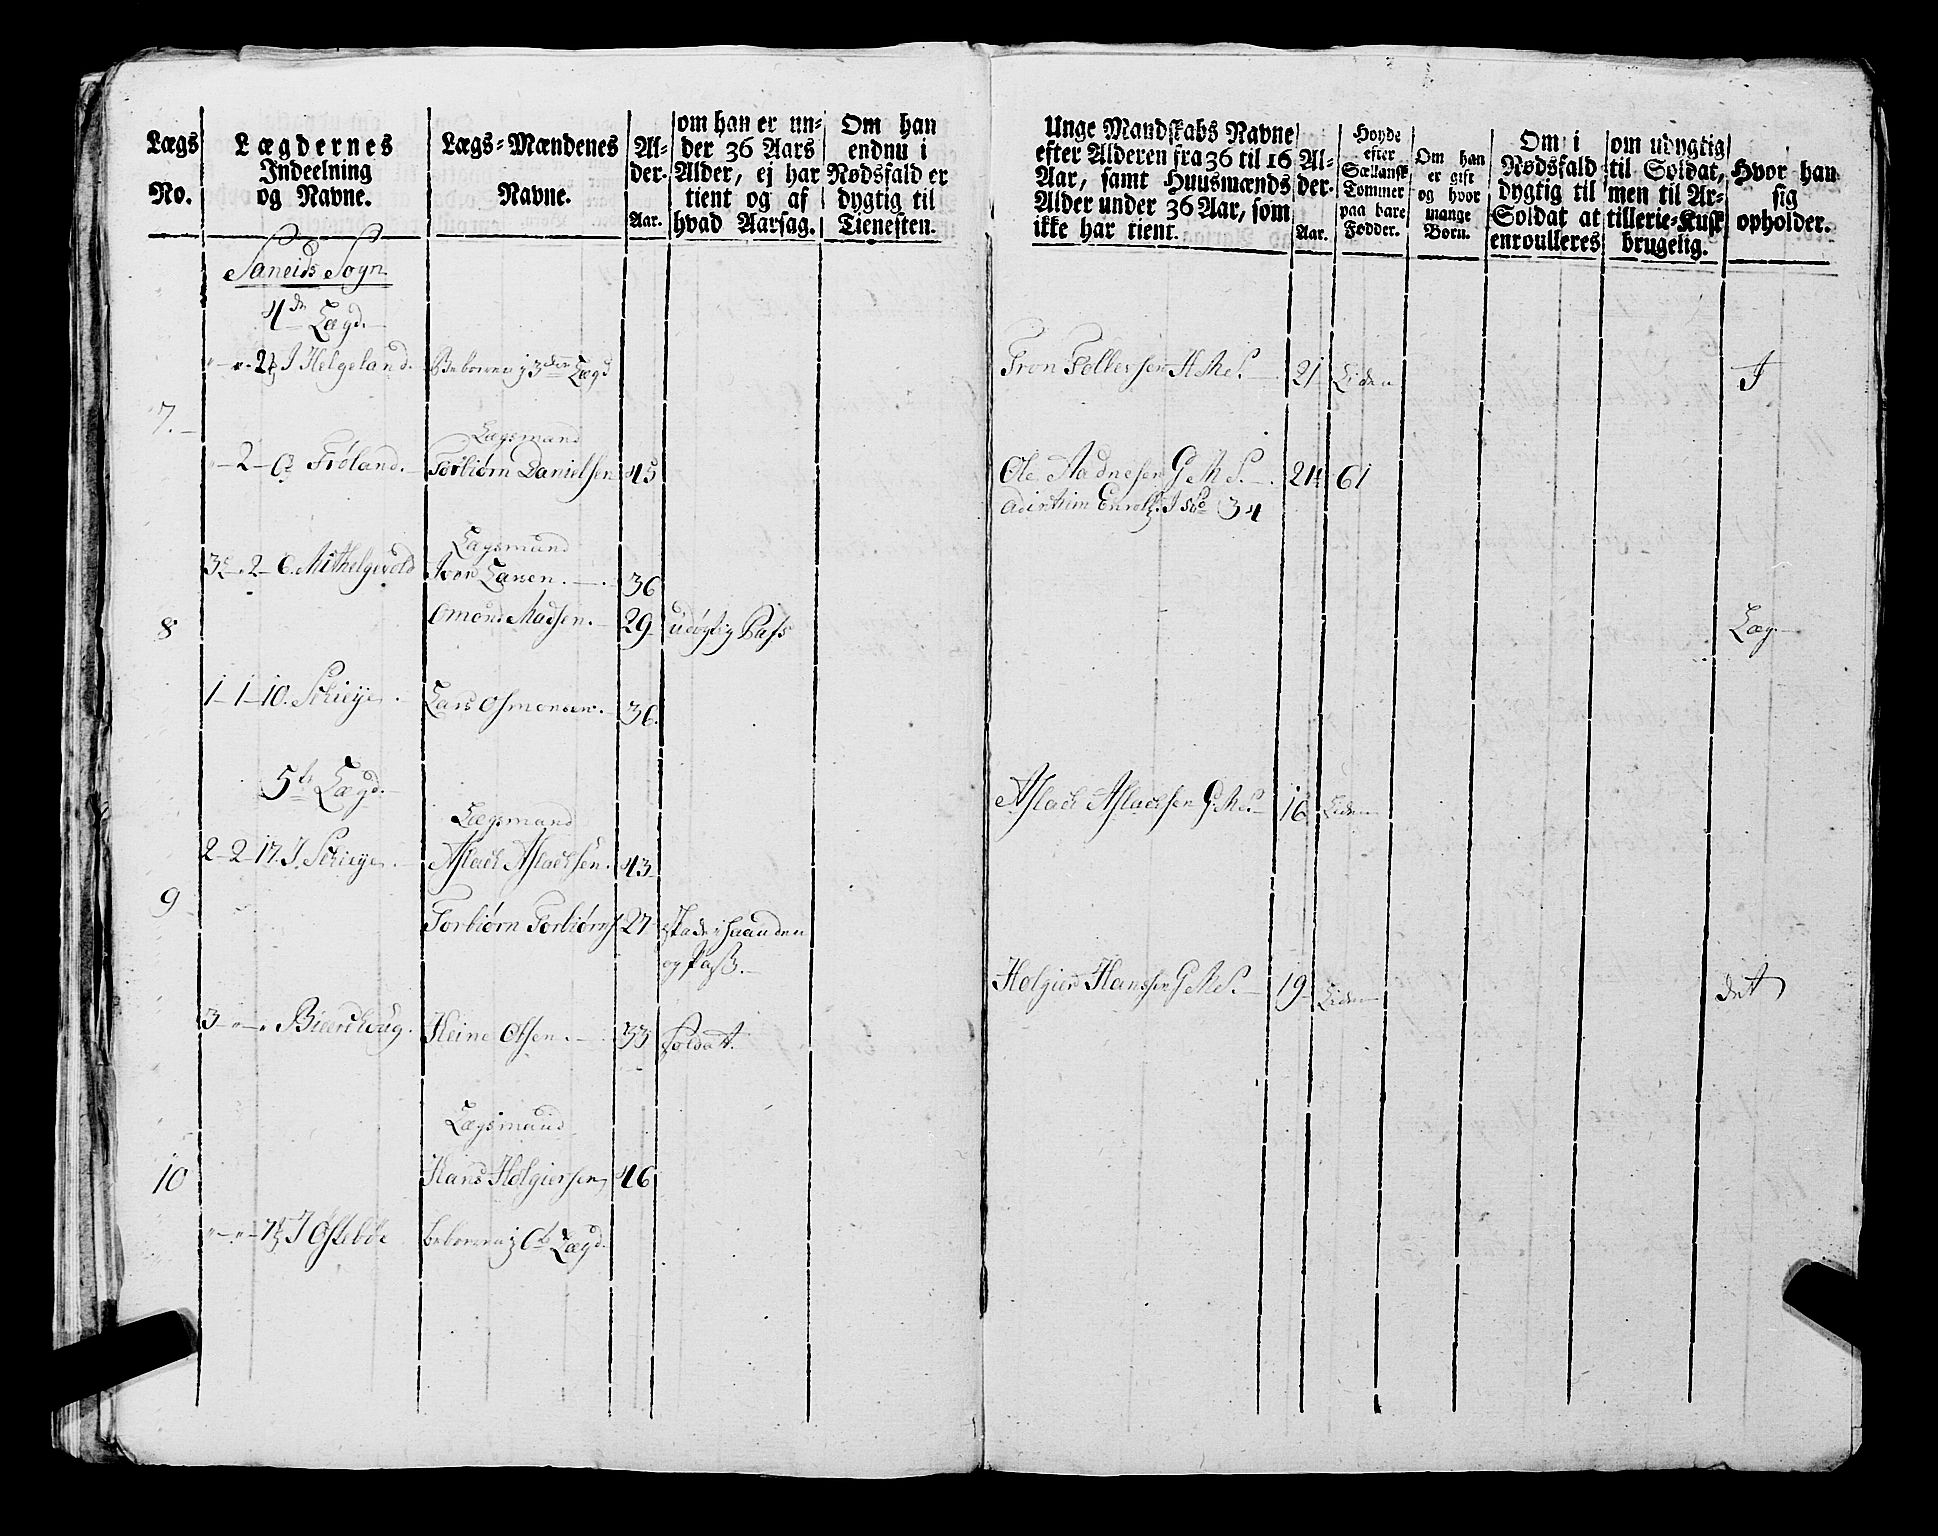 Lægs
No.
Lægdernes
Indeelning
og Navne.
Lægs-Mændenes
Navne.
Al-
der.
Aar.
om han er un-
der 36 Aars
Alder, ej har
tient og af
hvad Aarsag.
Om han
endnu i
Nødsfald er
dygtig til
Tienesten.
Saneids Sogn
4de Lægd.
2 J Helgeland. Beboeren i 3die Lægd
7.
Lægsmand
2 Frøland. Torbiørn Danielsen 45
Lægsmand
3 2 6 Mithelgevold Iver Larsen. 36
8 Omund Madsen. 29 udøgtig Pass
1 1 10. Schieye. Lars Osmonsen. 36.
5te Lægd.
Lægsmand
2 2 17. J. Schieye. Aslack Aslacksen. 43
9
Torbiørn Torbiørns 27 skade i haanden
og Pass.
3 Heine Olsen. 33 Soldatt.
Lægsmand
10 Hans Holgiersen 46
J Østebøe beboeren i 6te Lægd.
Unge Mandskabs Navne
efter Alderen fra 36 til 16
Aar, samt Huusmænds
Alder under 36 Aar, som
ikke har tient.
Al-
der.
Aar.
Hoyde
efter
Sællansk
Tommer
paa bare
Fødder.
Om han
er gift
og hvor
mange
Born.
Om i
Nødsfald
dygtig til
Soldat at
enroulleres
om udygtig
til Soldat,
men til Ar-
tillerie-Kusk
brugelig.
Hvor han
sig
opholder.
Tron Tollessen 21 Liden
Ole Aadnesen G M S. 21 61
No 34
Læg
Aslack Aslacksen G. M S. 16 Liden
Holgier Hanssen G M S. 19 Liden